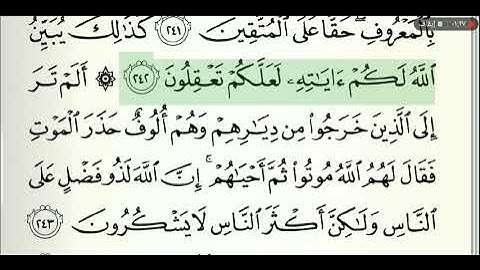 ٠١:٢٧
بِالْمَعْرُوفِ ۖ حَقًّا عَلَى الْمُتَّقِينَ ٢٤١ كَذَٰلِكَ يُبَيِّنُ
اللَّهُ لَكُمْ ءَايَاتِهِۦ لَعَلَّكُمْ تَعْقِلُونَ ٢٤٢ ۞ أَلَمْ تَرَ
إِلَى الَّذِينَ خَرَجُوا مِن دِيَارِهِمْ وَهُمْ أُلُوفٌ حَذَرَ الْمَوْتِ
فَقَالَ لَهُمُ اللَّهُ مُوتُوا ثُمَّ أَحْيَاهُمْ ۚ إِنَّ اللَّهَ لَذُو فَضْلٍ عَلَى
النَّاسِ وَلَٰكِنَّ أَكْثَرَ النَّاسِ لَا يَشْكُرُونَ ٢٤٣